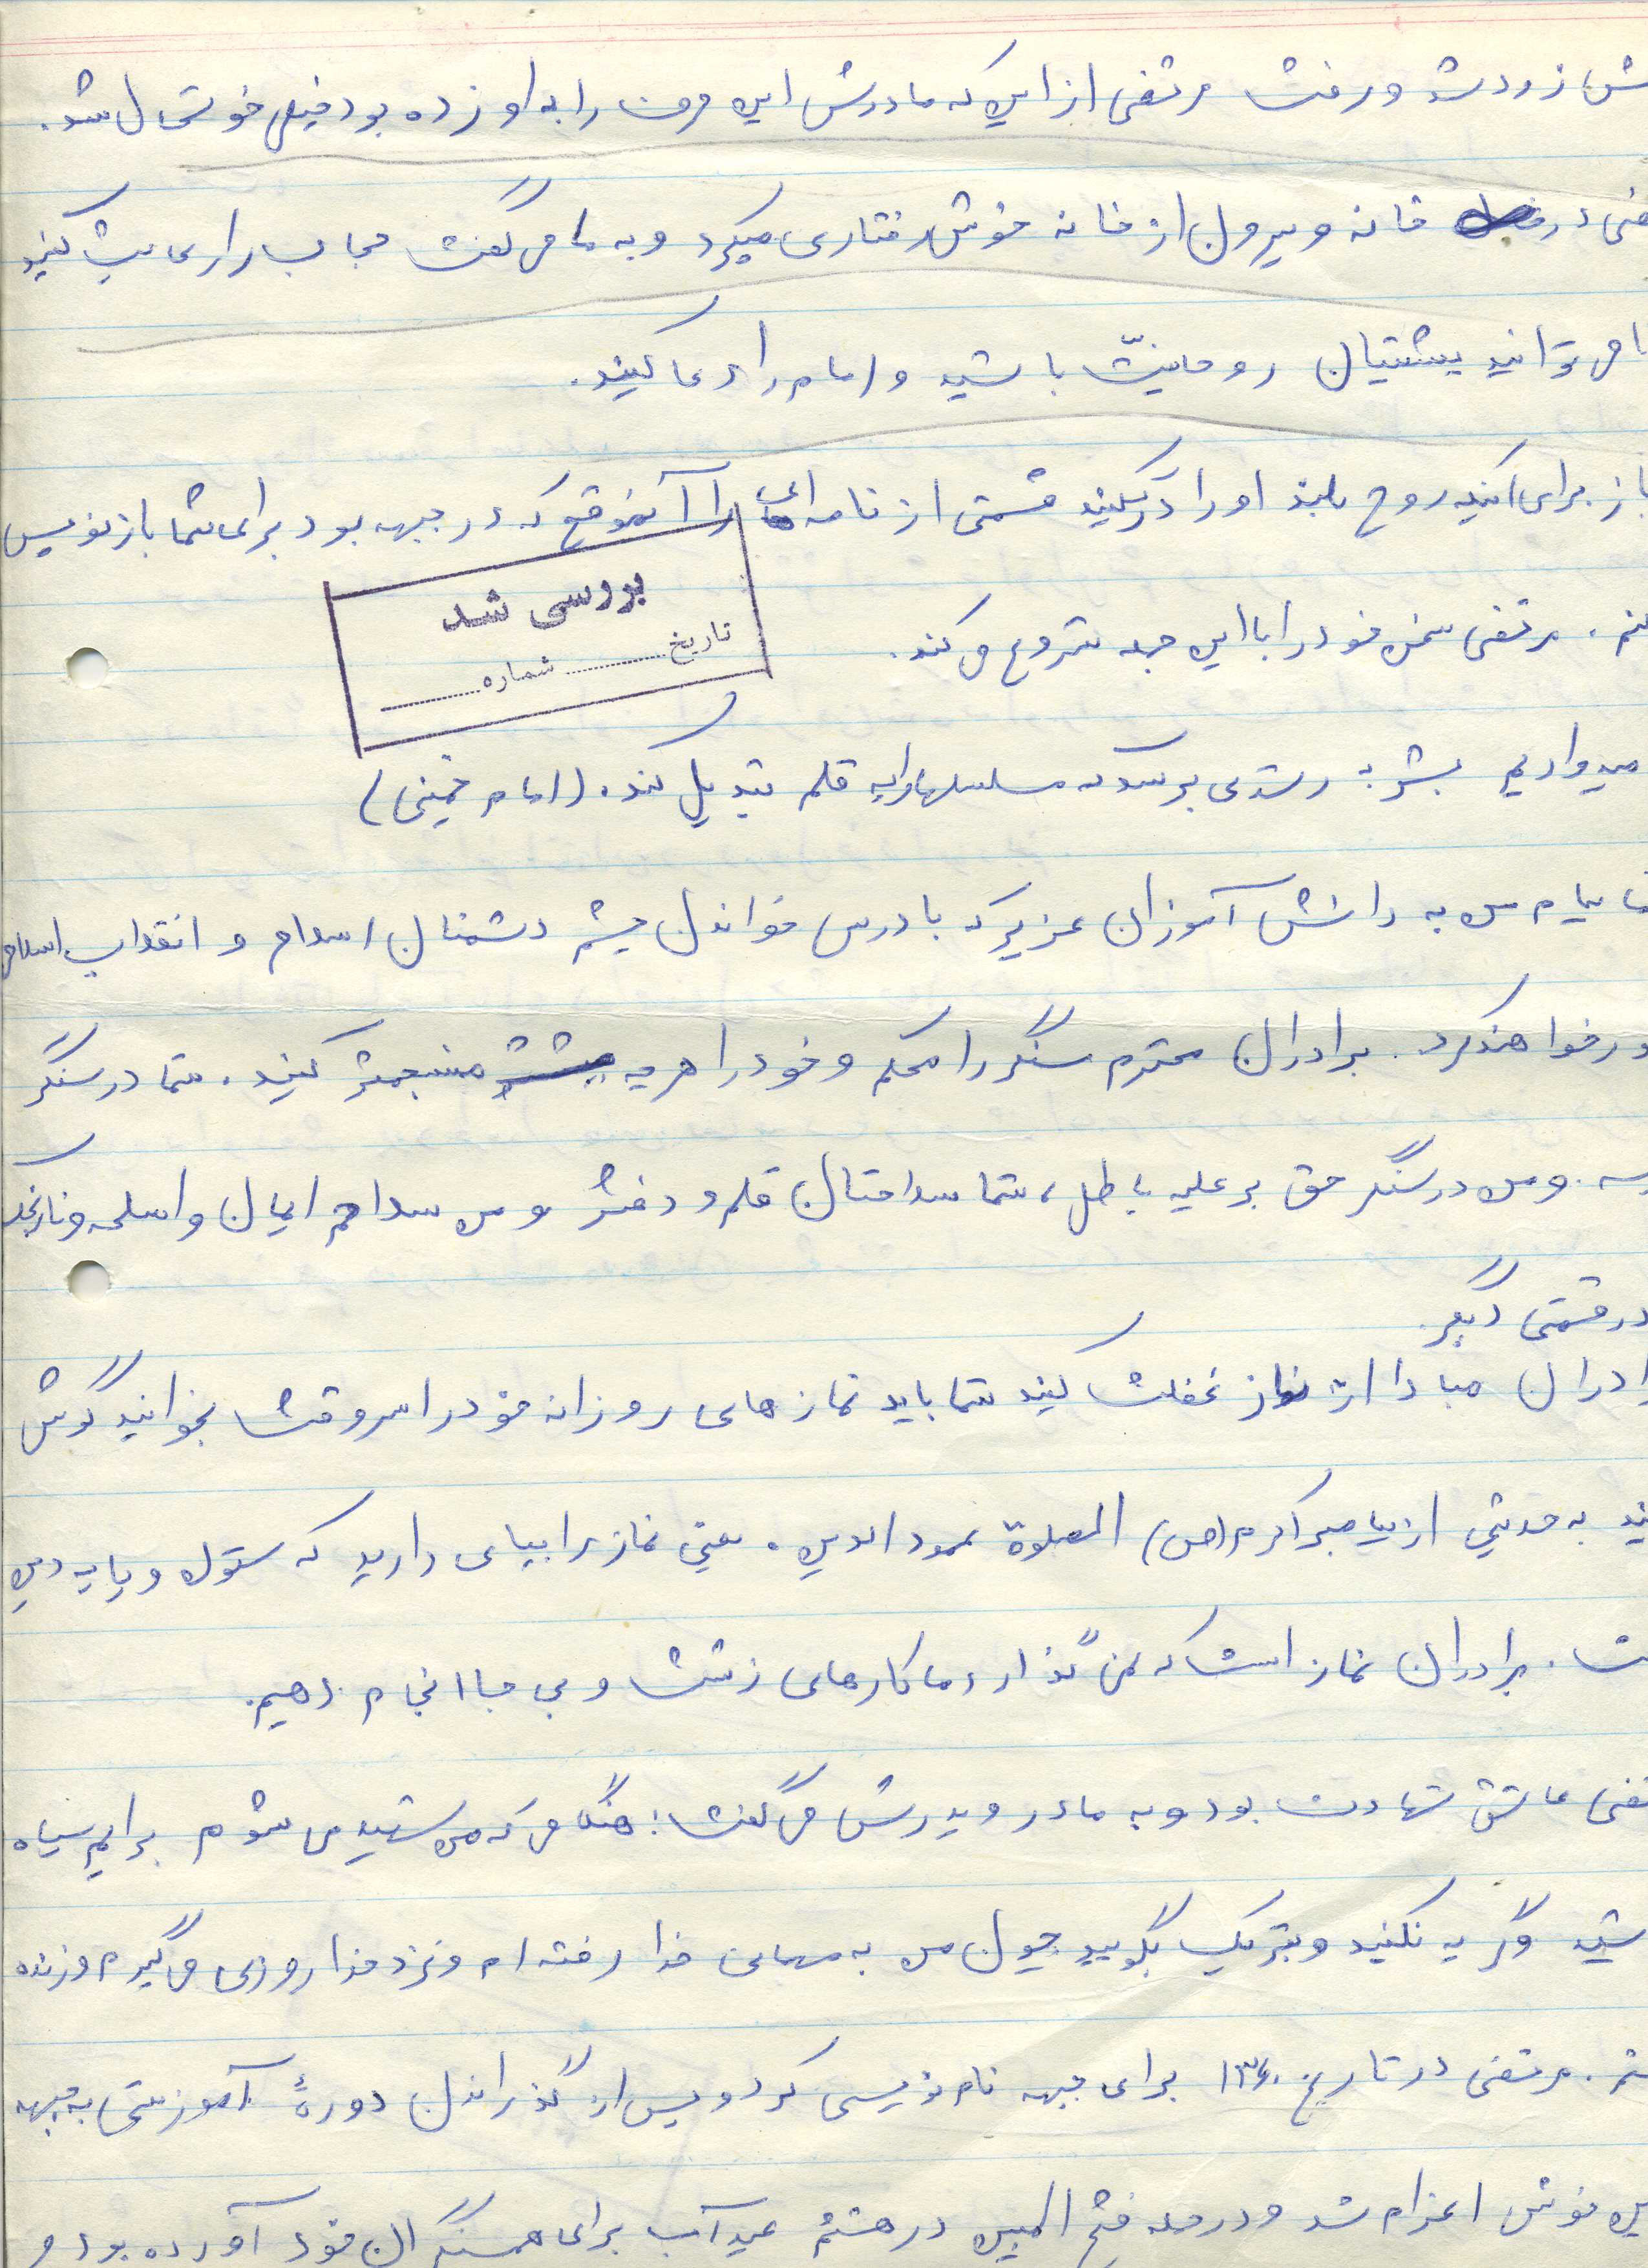 زودت ورفت مرتضی از این که مادرش این حرف را به او زده بود خیلی خوشحال شد.
در خانه و بیرون از خانه خوش رفتاری میکرد و به ما می گفت حجاب را رعایت کنید
می توانید پشتیبان روحانیّت باشید و امام را دعا کنید.
باز برای اینکه روح بلند او را درک کنید قسمتی از نامه ای را آنموقع که در جبهه بود برای شما بازنویس
کنم. مرتضی سخن خود را با این جمله شروع می کند.
بررسی شد
تاریخ شماره
امیدواریم بشر به رشدی برسد که مسلسلها را به قلم تبدیل کند. (امام خمینی)
پیام من به دانش آموزان عزیز که با درس خواندن چشم دشمنان اسلام و انقلاب اسلامی
کور خواهند کرد. برادران محترم سنگر را محکم و خود را هر چه منسجمتر کنید. شما در سنگر
ومن در سنگر حق بر علیه باطل، شما سلاحتان قلم و دفتر و من سلاحم ایمان و اسلحه و نارنجک
در قسمتی دیگر.
برادران مبادا از نماز غفلت کنید شما باید نمازهای روزانه خود را سر وقت بخوانید گوش
کنید به حدیثی از پیامبر اکرم (ص) الصلوة عمود الدین. یعنی نماز را بپای دارید که ستون و پایه دین
است. برادران نماز است که نمی گذارد ما کارهای زشت و بی جا انجام دهیم.
مرتضی عاشق شهادت بود و به مادر و پدرش می گفت: هنگامی که من شهید می شوم برایم سیاه
و گریه نکنید و تبریک بگویید چون من به مهمانی خدا رفته ام و نزد خدا روزی می گیرم و زنده
مرتضی در تاریخ ۱۳۶۰ برای جبهه نام نویسی کرد و پس از گذراندن دورهٔ آموزشی به جبهه
اعزام شد و در حمله فتح المبین در هشتم عید آب برای همسنگران خود آورده بود و